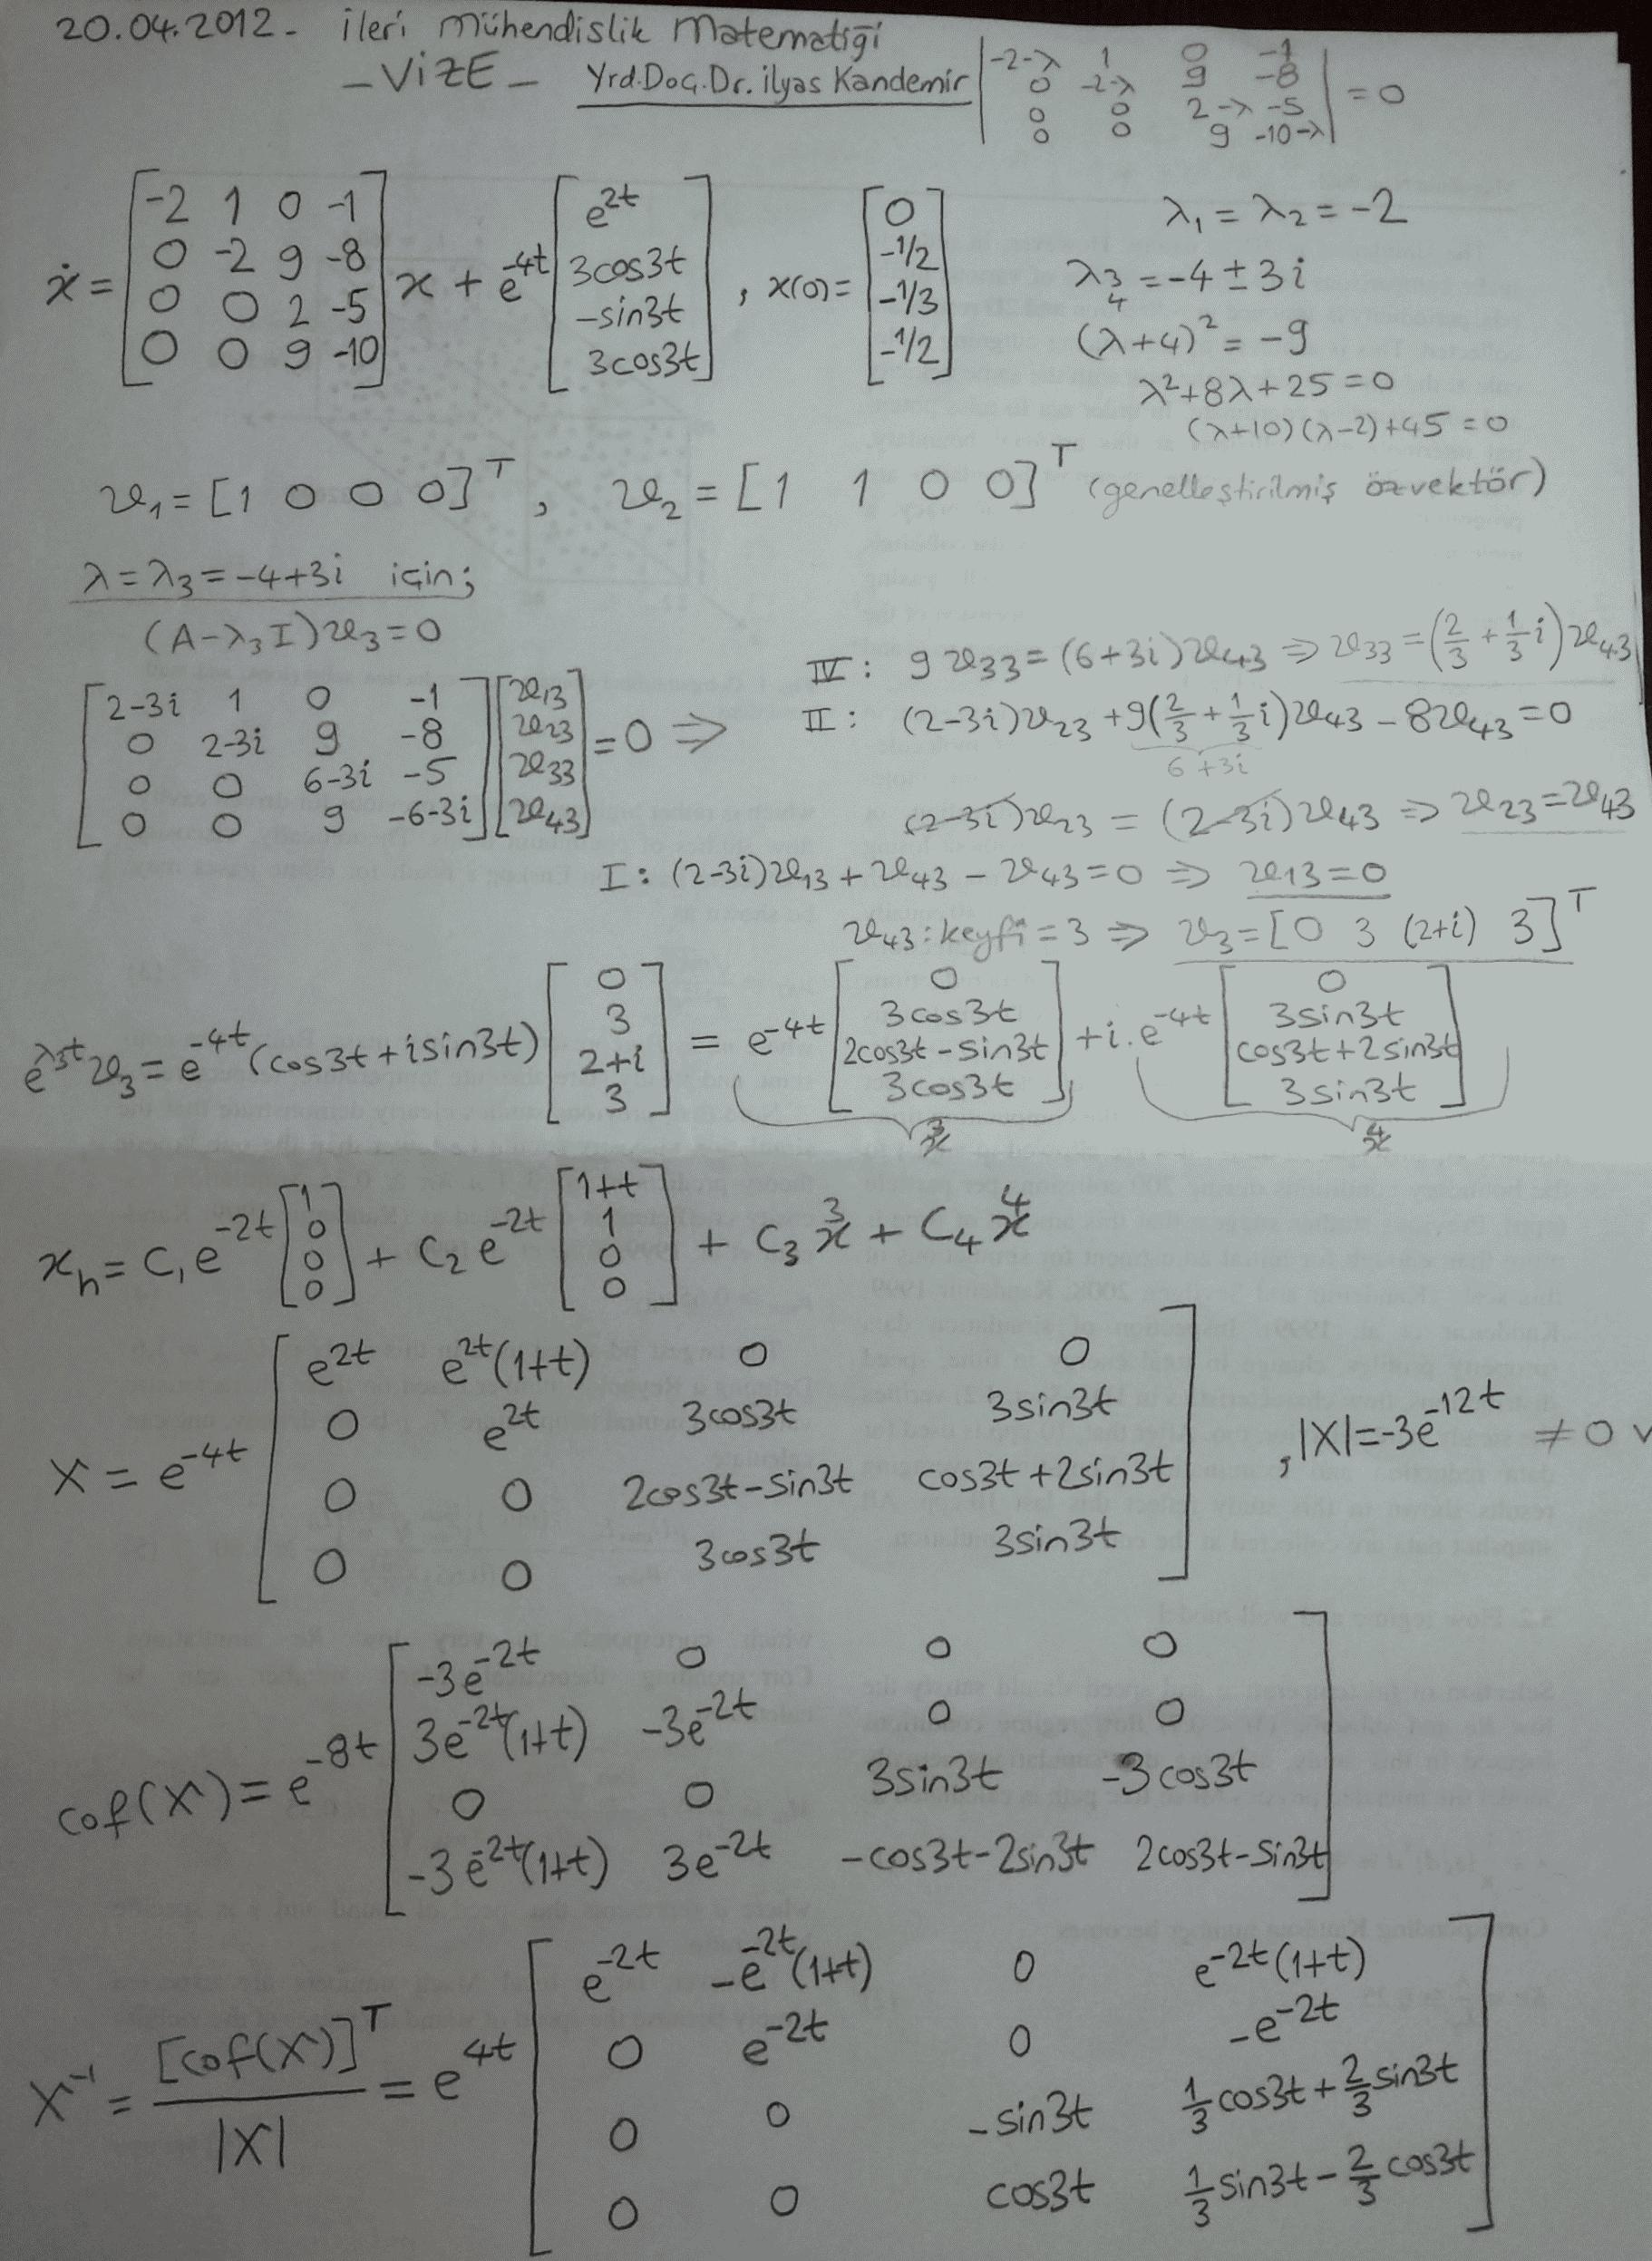 20.04.2012 - ileri Mühendislik Matematiği
- VİZE - Yrd.Doç.Dr. ilyas Kandemir
|-2-λ 1 0 -1|
|0 -2-λ 9 -8|
|0 0 2-λ -5| = 0
|0 0 9 -10-λ|
ẋ = [-2 1 0 -1; 0 -2 9 -8; 0 0 2 -5; 0 0 9 -10] x + e^-4t [e^2t; 3cos3t; -sin3t; 3cos3t] , x(0) = [0; -1/2; -1/3; -1/2]
λ₁ = λ₂ = -2
λ₃,₄ = -4 ± 3i
(λ+4)² = -9
λ²+8λ+25 = 0
(λ+10)(λ-2)+45 = 0
v₁ = [1 0 0 0]^T , v₂ = [1 1 0 0]^T (genelleştirilmiş özvektör)
λ = λ₃ = -4+3i için;
(A-λ₃I)v₃ = 0
[2-3i 1 0 -1; 0 2-3i 9 -8; 0 0 6-3i -5; 0 0 9 -6-3i] [v₁₃; v₂₃; v₃₃; v₄₃] = 0 ⇒
IV : 9v₃₃ = (6+3i)v₄₃ ⇒ v₃₃ = (2/3 + 1/3 i)v₄₃
II : (2-3i)v₂₃ + 9(2/3 + 1/3 i)v₄₃ - 8v₄₃ = 0
6+3i
(2-3i)v₂₃ = (2-3i)v₄₃ ⇒ v₂₃ = v₄₃
I : (2-3i)v₁₃ + v₄₃ - v₄₃ = 0 ⇒ v₁₃ = 0
v₄₃ : keyfi = 3 ⇒ v₃ = [0 3 (2+i) 3]^T
e^λ₃t v₃ = e^-4t (cos3t + isin3t) [0; 3; 2+i; 3] = e^-4t [0; 3cos3t; 2cos3t-sin3t; 3cos3t] + i.e^-4t [0; 3sin3t; cos3t+2sin3t; 3sin3t]
³x ⁴x
x_h = C₁e^-2t [1; 0; 0; 0] + C₂e^-2t [1+t; 1; 0; 0] + C₃ ³x + C₄ ⁴x
X = e^-4t [e^2t e^2t(1+t) 0 0; 0 e^2t 3cos3t 3sin3t; 0 0 2cos3t-sin3t cos3t+2sin3t; 0 0 3cos3t 3sin3t] , |X| = -3e^-12t ≠ 0 ✓
cof(X) = e^-8t [-3e^-2t 0 0 0; 3e^-2t(1+t) -3e^-2t 0 0; 0 0 3sin3t -3cos3t; -3e^-2t(1+t) 3e^-2t -cos3t-2sin3t 2cos3t-sin3t]
X^-1 = [cof(X)]^T / |X| = e^4t [e^-2t -e^-2t(1+t) 0 e^-2t(1+t); 0 e^-2t 0 -e^-2t; 0 0 -sin3t 1/3 cos3t + 2/3 sin3t; 0 0 cos3t 1/3 sin3t - 2/3 cos3t]